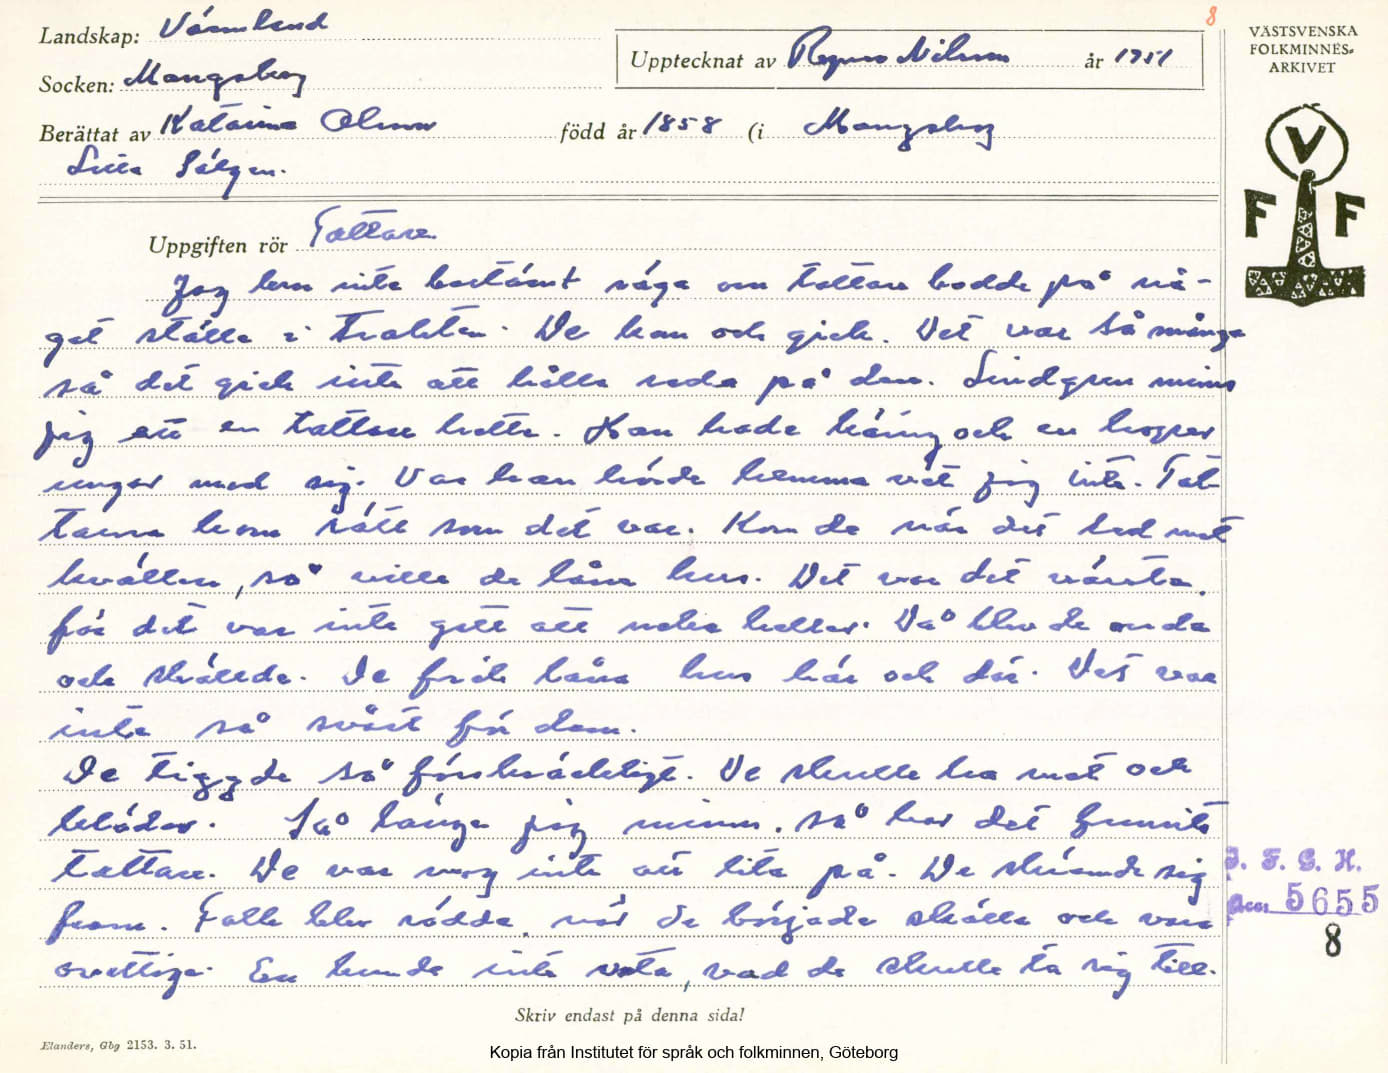 8
Landskap: Värmland
VÄSTSVENSKA
FOLKMINNES-
ARKIVET
Upptecknat av Ragnar Nilsson år 1951
Socken: Mangskog
Berättat av Katarina Olsson född år 1858 (i Mangskog
Lilla Sälgen.
V
F F
Uppgiften rör Tattare
Jag kan inte bestämt säga om tattare bodde på nå-
got ställe i trakten. De kom och gick. Det var så många
så det gick inte att hålla reda på dem. Lindgren minns
jag att en tattare hette. Han hade käring och en hoper
ungar med sig. Var han hörde hemma vet jag inte. Tat-
tarna kom rätt som det var. Kom de när det led mot
kvällen, så ville de låna hus. Det var det värsta,
för det var inte gott att neka heller. Då blev de onda
och skällde. De fick låna hus här och där. Det var
inte så svårt för dem.
De tiggde så förskräckligt. De skulle ha mat och
kläder. Så länge jag minns, så har det funnits
tattare. De var nog inte att lita på. De skrämde sig
fram. Folk blev rädda, när de började skälla och vara
ovettiga. En kunde inte veta, vad de skulle ta sig till.
I. F. G. H.
Acc. 5655
8
Skriv endast på denna sida!
Elanders, Gbg 2153. 3. 51.
Kopia från Institutet för språk och folkminnen, Göteborg